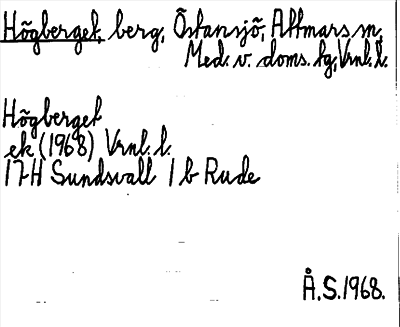 Högberget, berg, Östansjö, Attmars sn,
Med. v. doms. tg, Vrnl. l.
Högberget
ek (1968) Vrnl. l.
17H Sundsvall 1 b Rude
Å.S.1968.